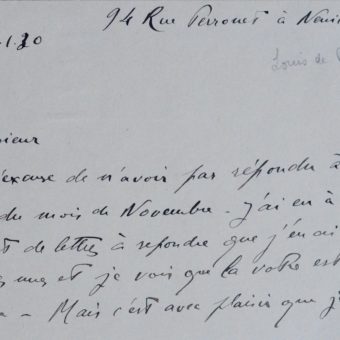 94 Rue Perronet à Neui
.1.30
Louis de
sieur
'excuse de n'avoir pas répondu à
du mois de Novembre. J'ai eu à
t de lettres à répondre que j'en ai
unes et je vois que la votre est
- Mais c'est avec plaisir que j